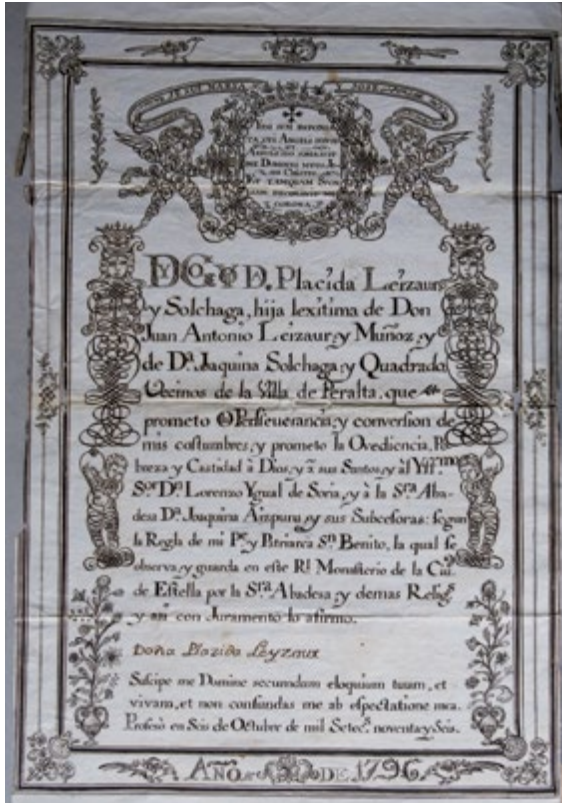 Yo D. Placida Leizaur
y Solchaga, hija lexitima de Don
Juan Antonio Leizaur, y Muñoz, y
de Dª. Jaquina Solchaga, y Quadrado
Vecinos de la Villa de Peralta, que
prometo Perseuerancia, y conversion de
mis costumbres, y prometo la Ovediencia, Po-
breza y Castidad â Dios, y â sus Santos, y âl Yttmo
Sor. Dn. Lorenzo Ygual de Soria, y â la Sra. Aba-
desa Dª. Joaquina Aizpuru, y sus Subcesoras: segun
la Regla de mi Pe. y Patriarca Sn. Benito, la qual se
observa, y guarda en este Rl. Monasterio de la Ciud.
de Estella por la Sra. Abadesa, y demas Religs.
y asi con Juramento lo afirmo.
Doña Plazida Leyzaur
Suscipe me Domine secumdum eloquium tuum, et
vivam, et non confundas me ab espectatione mea.
Profesò en Seis de Octubre de mil Setecs. noventa y Seis.
AÑO DE 1796